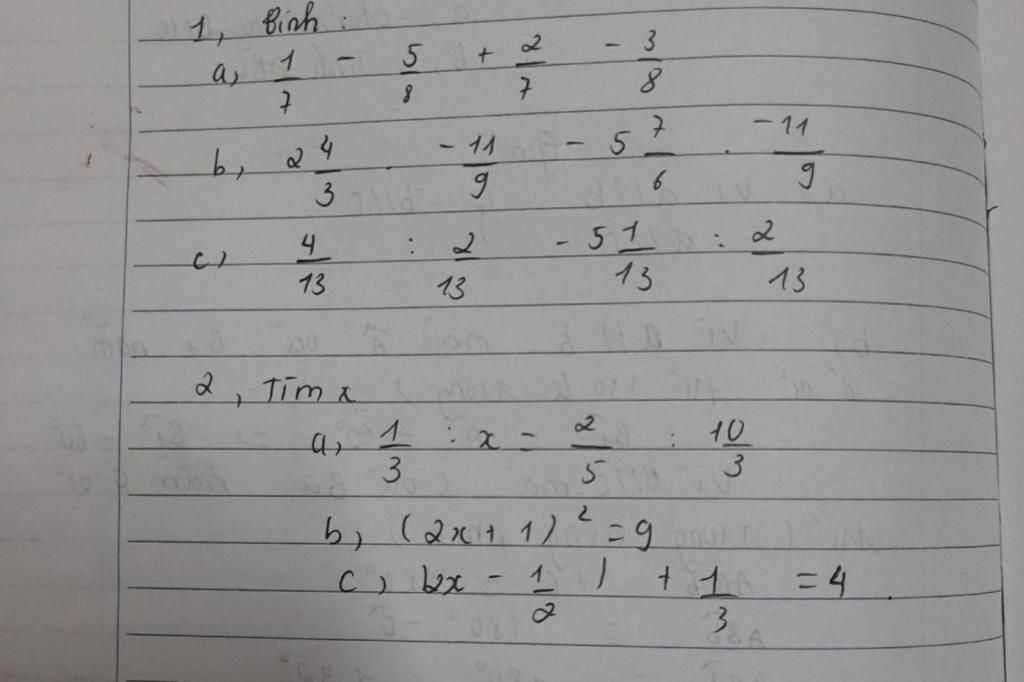 1, Tính :
a, 1/7 - 5/8 + 2/7 - 3/8
b, 2 4/3 . -11/9 - 5 7/6 . -11/9
c, 4/13 : 2/13 - 5 1/13 : 2/13
2, Tìm x
a, 1/3 : x = 2/5 : 10/3
b, (2x + 1)² = 9
c, |2x - 1/2| + 1/3 = 4.